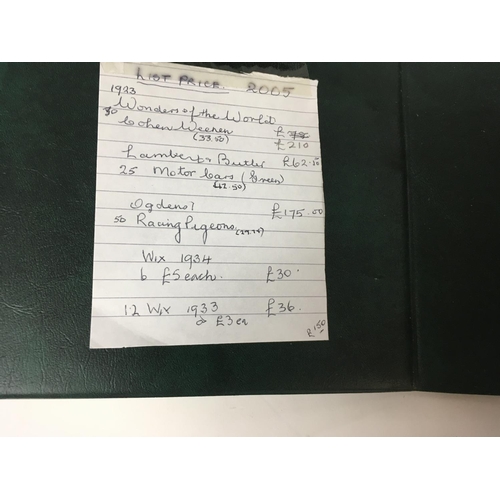 LIST PRICE 2005
1923
Wonders of the World
50 Cohen Weenen
(33.50) £210
Lambert & Butler £62.50
25 Motor Cars (Green)
£62.50)
Ogdens'
£175.00
50 Racing Pigeons
Wix 1934
6 £5 each £30.
12 Wix 1933 £36.
@ £3 ea
£150